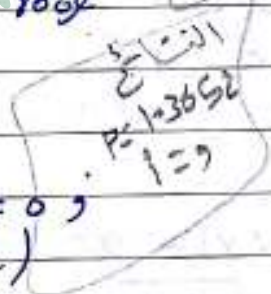 النتائج
P = 1.3652
1 = 9
= 0 ,
)